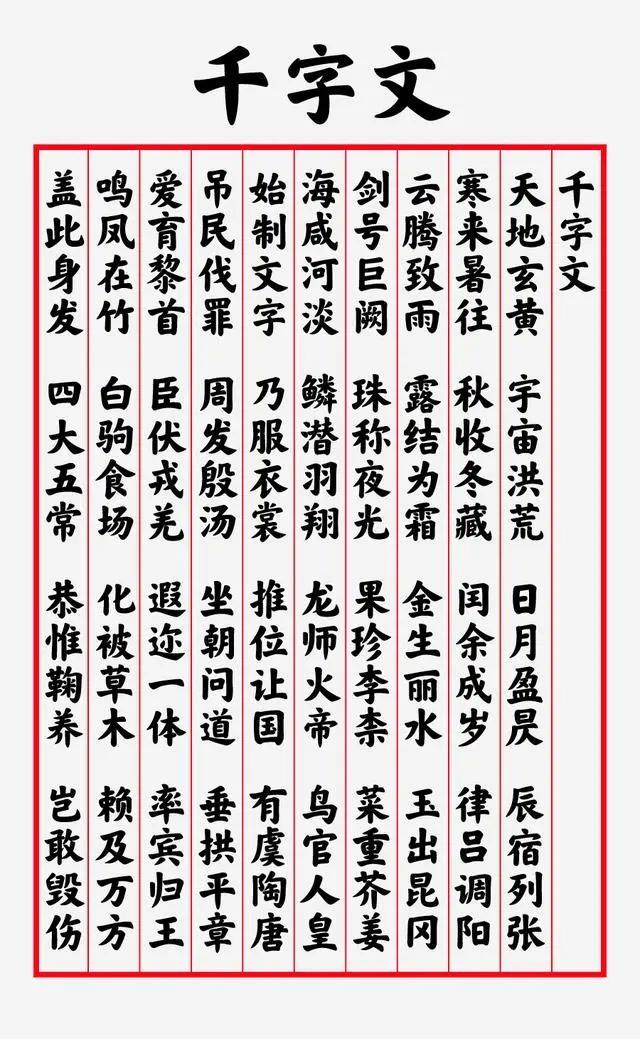 千字文
千字文
天地玄黄 宇宙洪荒 日月盈昃 辰宿列张
寒来暑往 秋收冬藏 闰余成岁 律吕调阳
云腾致雨 露结为霜 金生丽水 玉出昆冈
剑号巨阙 珠称夜光 果珍李柰 菜重芥姜
海咸河淡 鳞潜羽翔 龙师火帝 鸟官人皇
始制文字 乃服衣裳 推位让国 有虞陶唐
吊民伐罪 周发殷汤 坐朝问道 垂拱平章
爱育黎首 臣伏戎羌 遐迩一体 率宾归王
鸣凤在竹 白驹食场 化被草木 赖及万方
盖此身发 四大五常 恭惟鞠养 岂敢毁伤